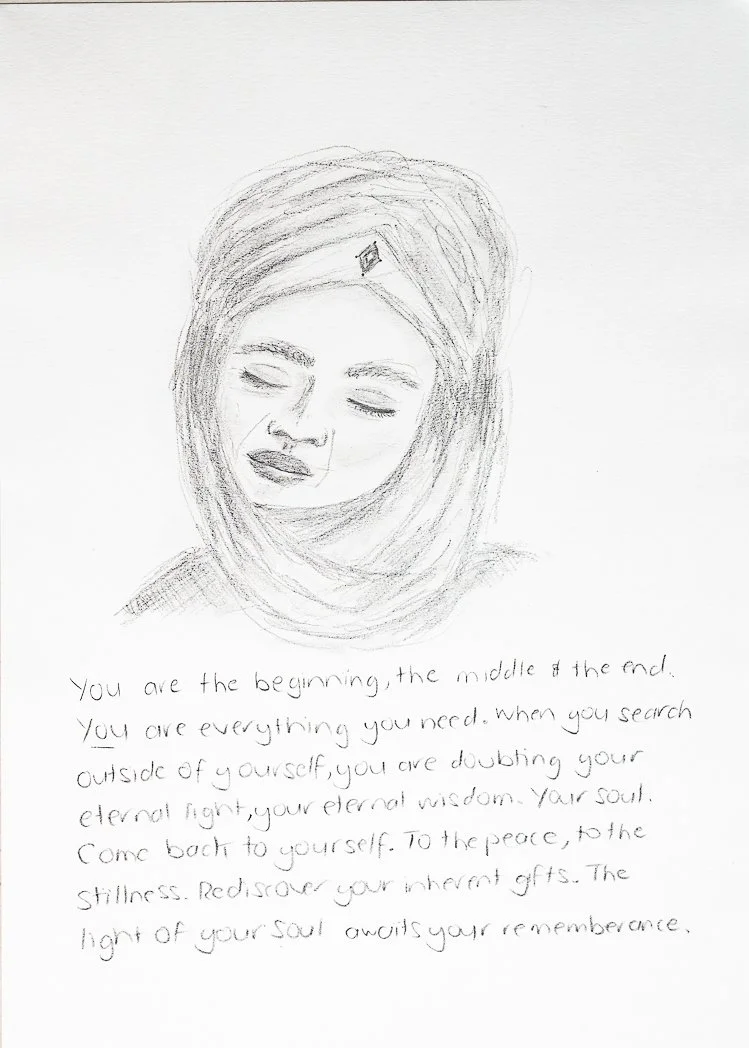 You are the beginning, the middle & the end.
You are everything you need. When you search
outside of yourself, you are doubting your
eternal light, your eternal wisdom. Your soul.
Come back to yourself. To the peace, to the
stillness. Rediscover your inherent gifts. The
light of your soul awaits your rememberance.